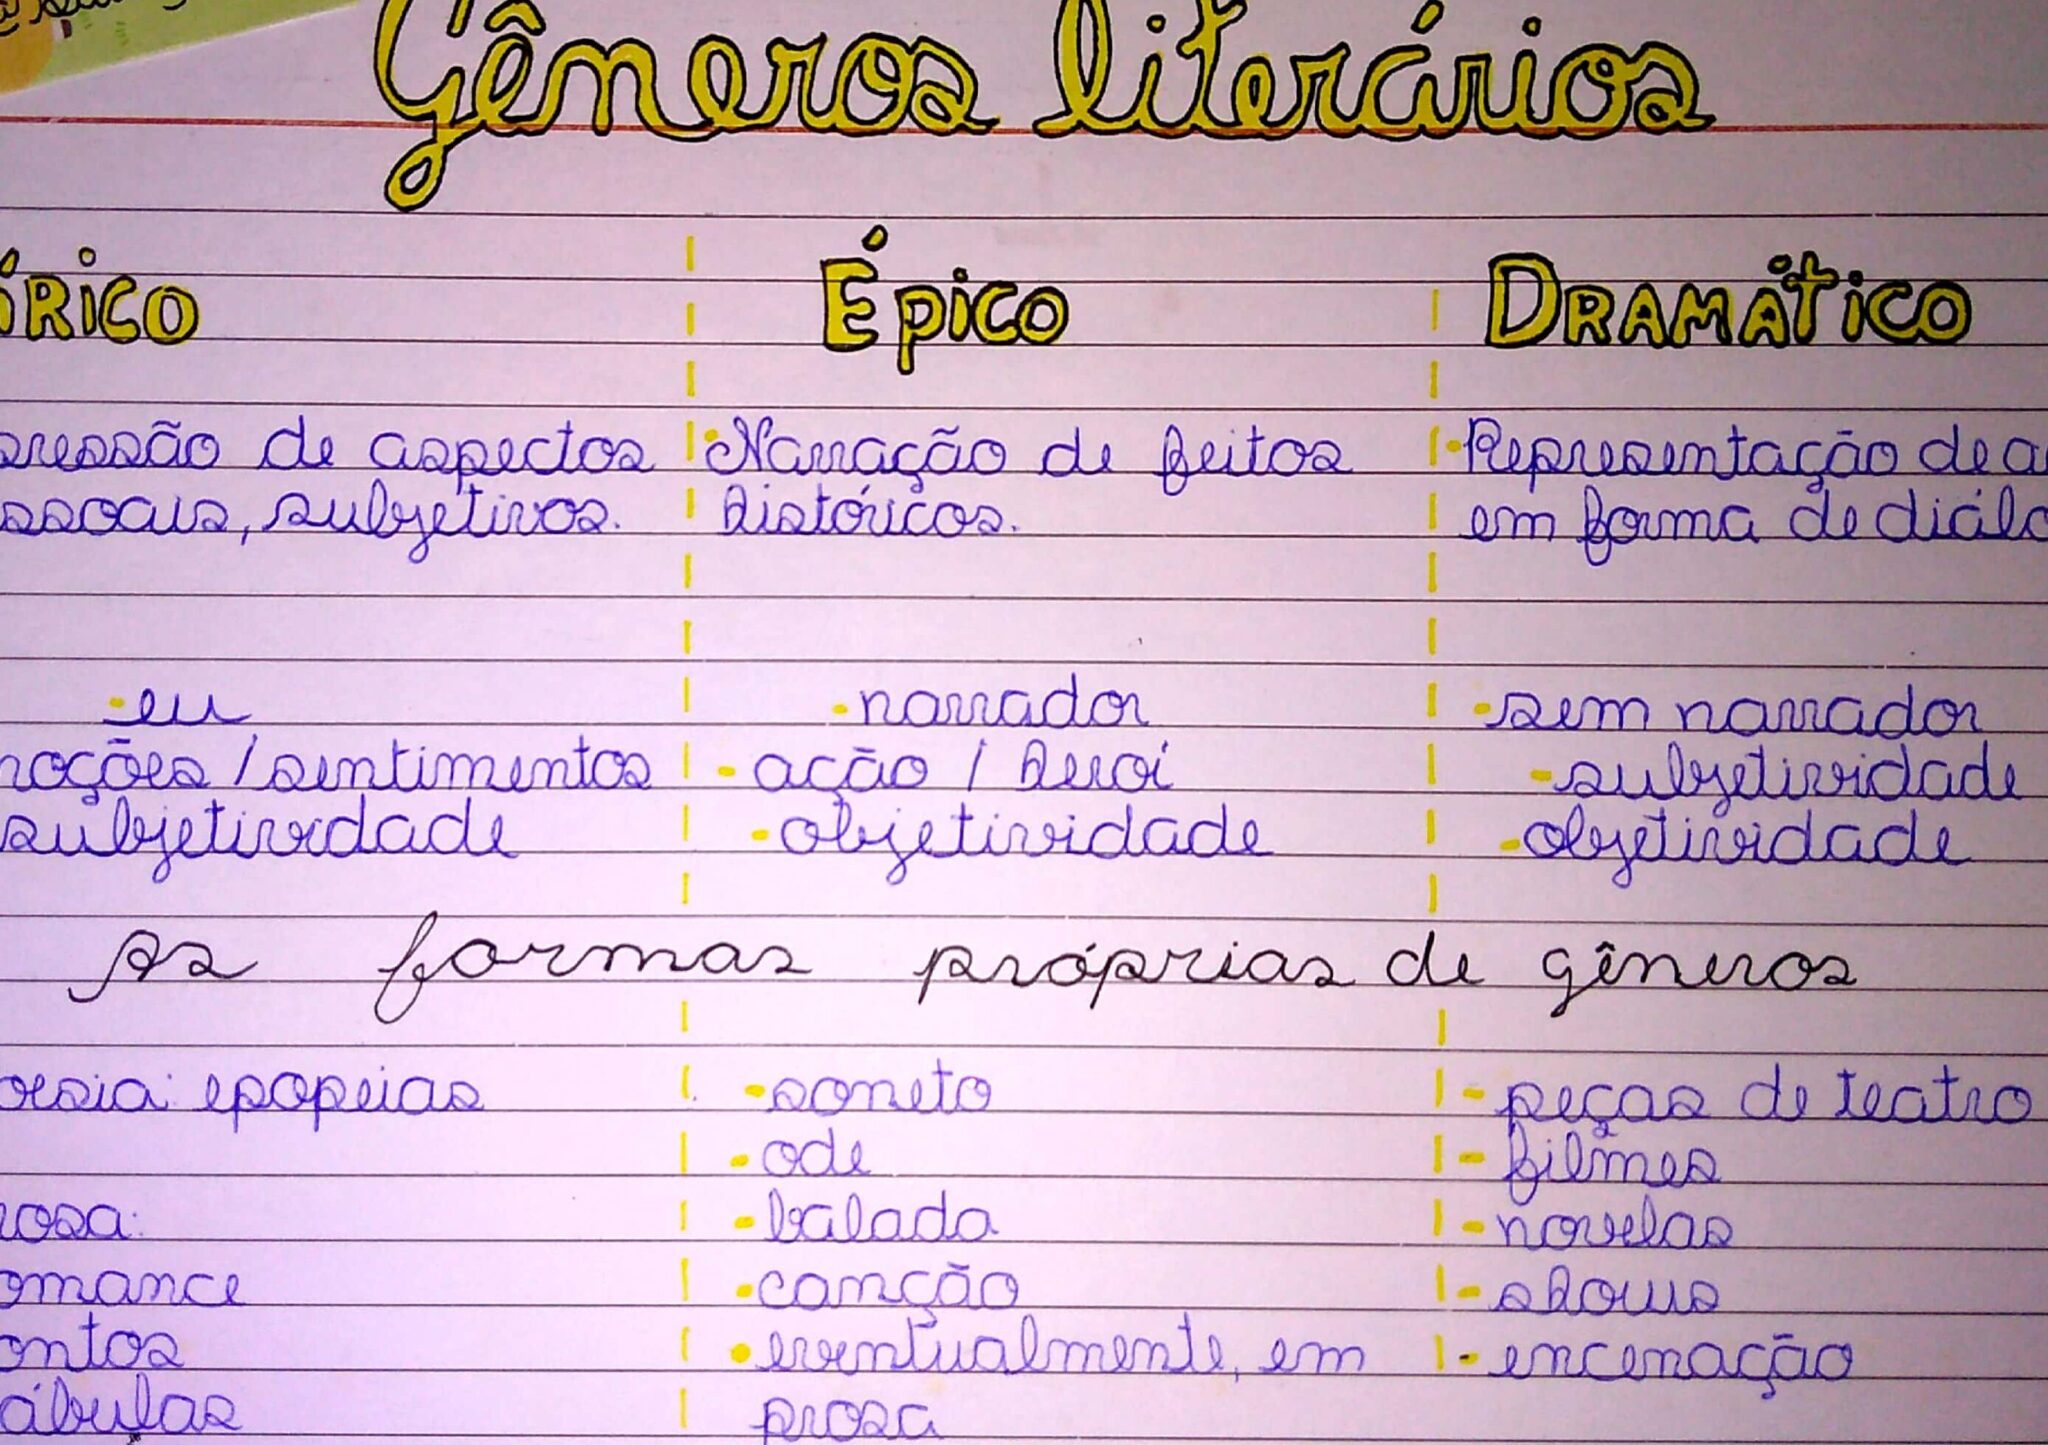 Gêneros literários
írico Épico Dramático
pressão de aspectos
ssoais, subjetivos.
Narração de feitos
históricos.
Representação de a
em forma de diálo
-eu
moções / sentimentos
subjetividade
-narrador
-ação / heroi
-objetividade
-sem narrador
-subjetividade
-objetividade
As formas próprias de gêneros
oesia: epopeias
rosa:
omance
ontos
ábulas
-soneto
-ode
-balada
-canção
eventualmente, em
prosa
-peças de teatro
-filmes
-novelas
-shows
-encenação